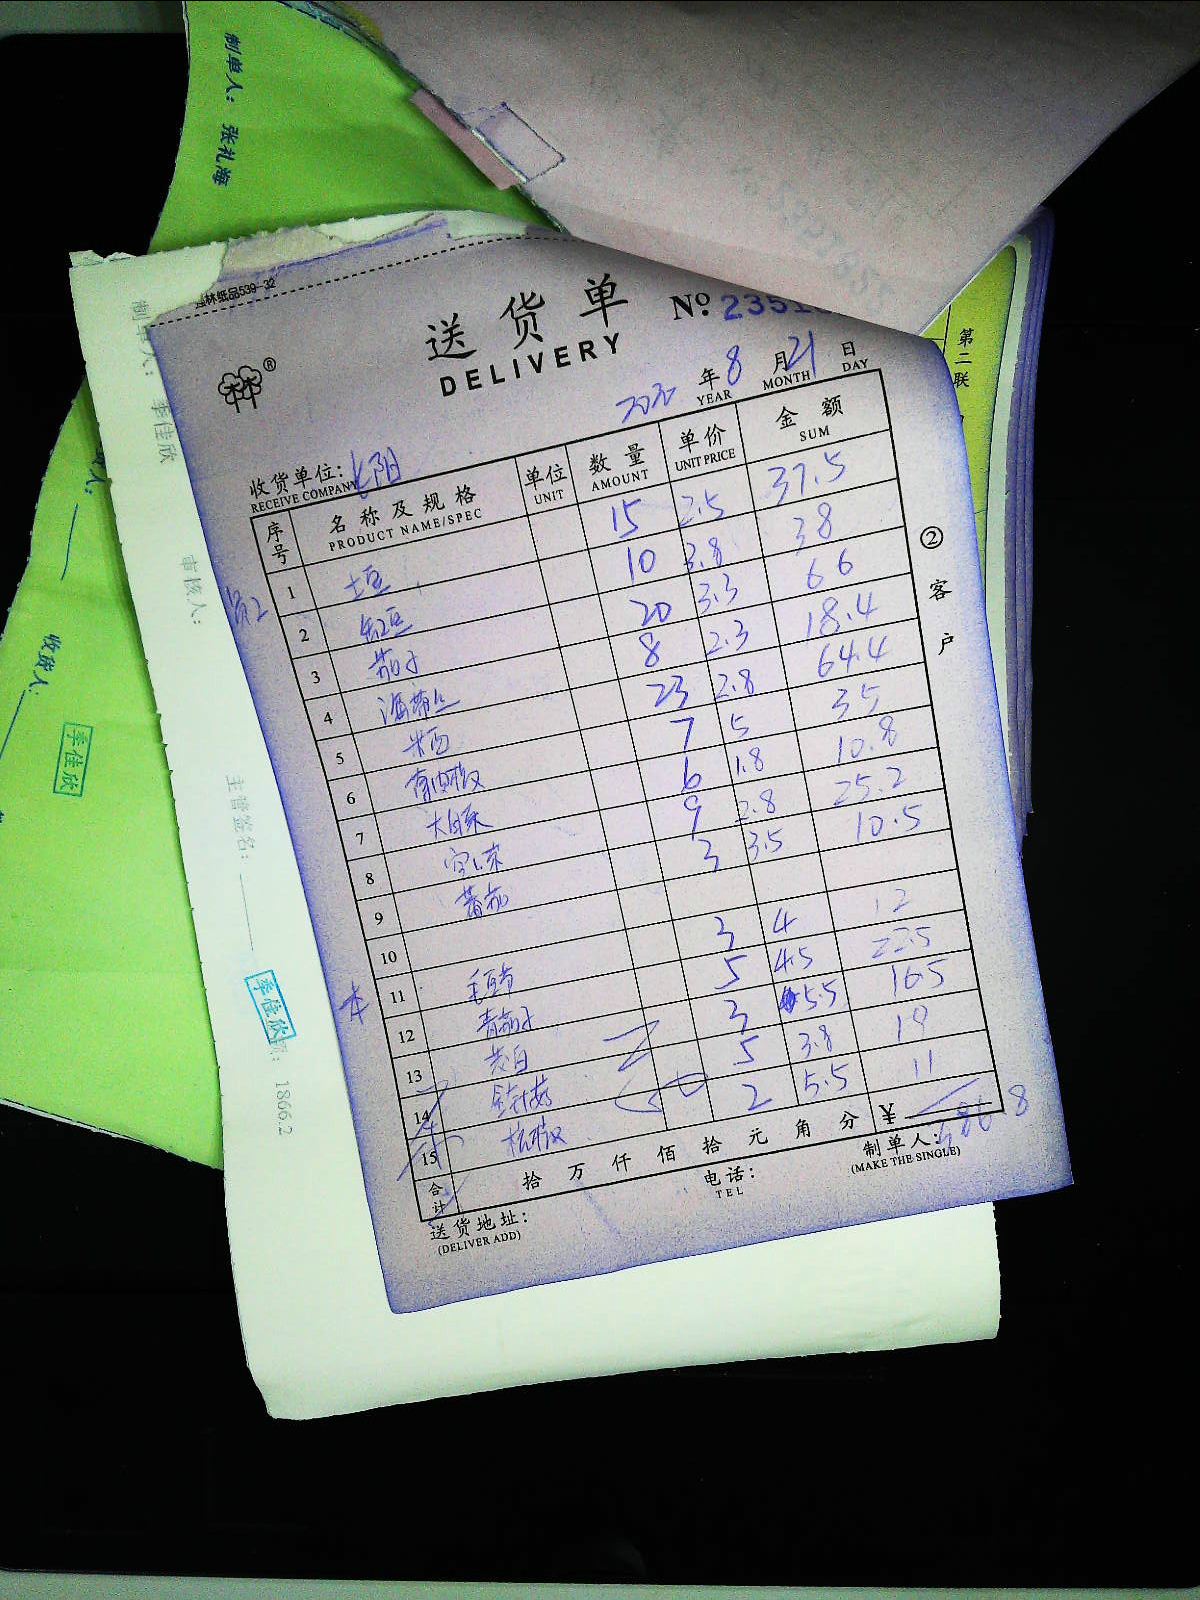 制单人: 张礼海
林纸品539-32
送货单 № 2351
DELIVERY
林®
2020 年 8 月 21 日
YEAR MONTH DAY
收货单位: 长阳
RECEIVE COMPANY
序号 名称及规格 单位 数量 单价 金额
PRODUCT NAME/SPEC UNIT AMOUNT UNIT PRICE SUM
1 土豆 15 2.5 37.5
2 10 3.8 38
3 茄子 20 3.3 66
4 海带丝 8 2.3 18.4
5 23 2.8 64.4
6 7 5 35
7 6 1.8 10.8
8 9 2.8 25.2
9 蕃茄 3 3.5 10.5
10
11 3 4 12
12 青茄子 5 4.5 22.5
13 茭白 3 5.5 16.5
14 5 3.8 19
15 2 5.5 11
合计 拾 万 仟 佰 拾 元 角 分 ¥
送货地址: 电话: 制单人:
(DELIVER ADD) TEL (MAKE THE SINGLE)
②客户
第二联
制单人: 季佳欣
审核人:
主管签名:
季佳欣
1866.2
收货人:
季佳欣